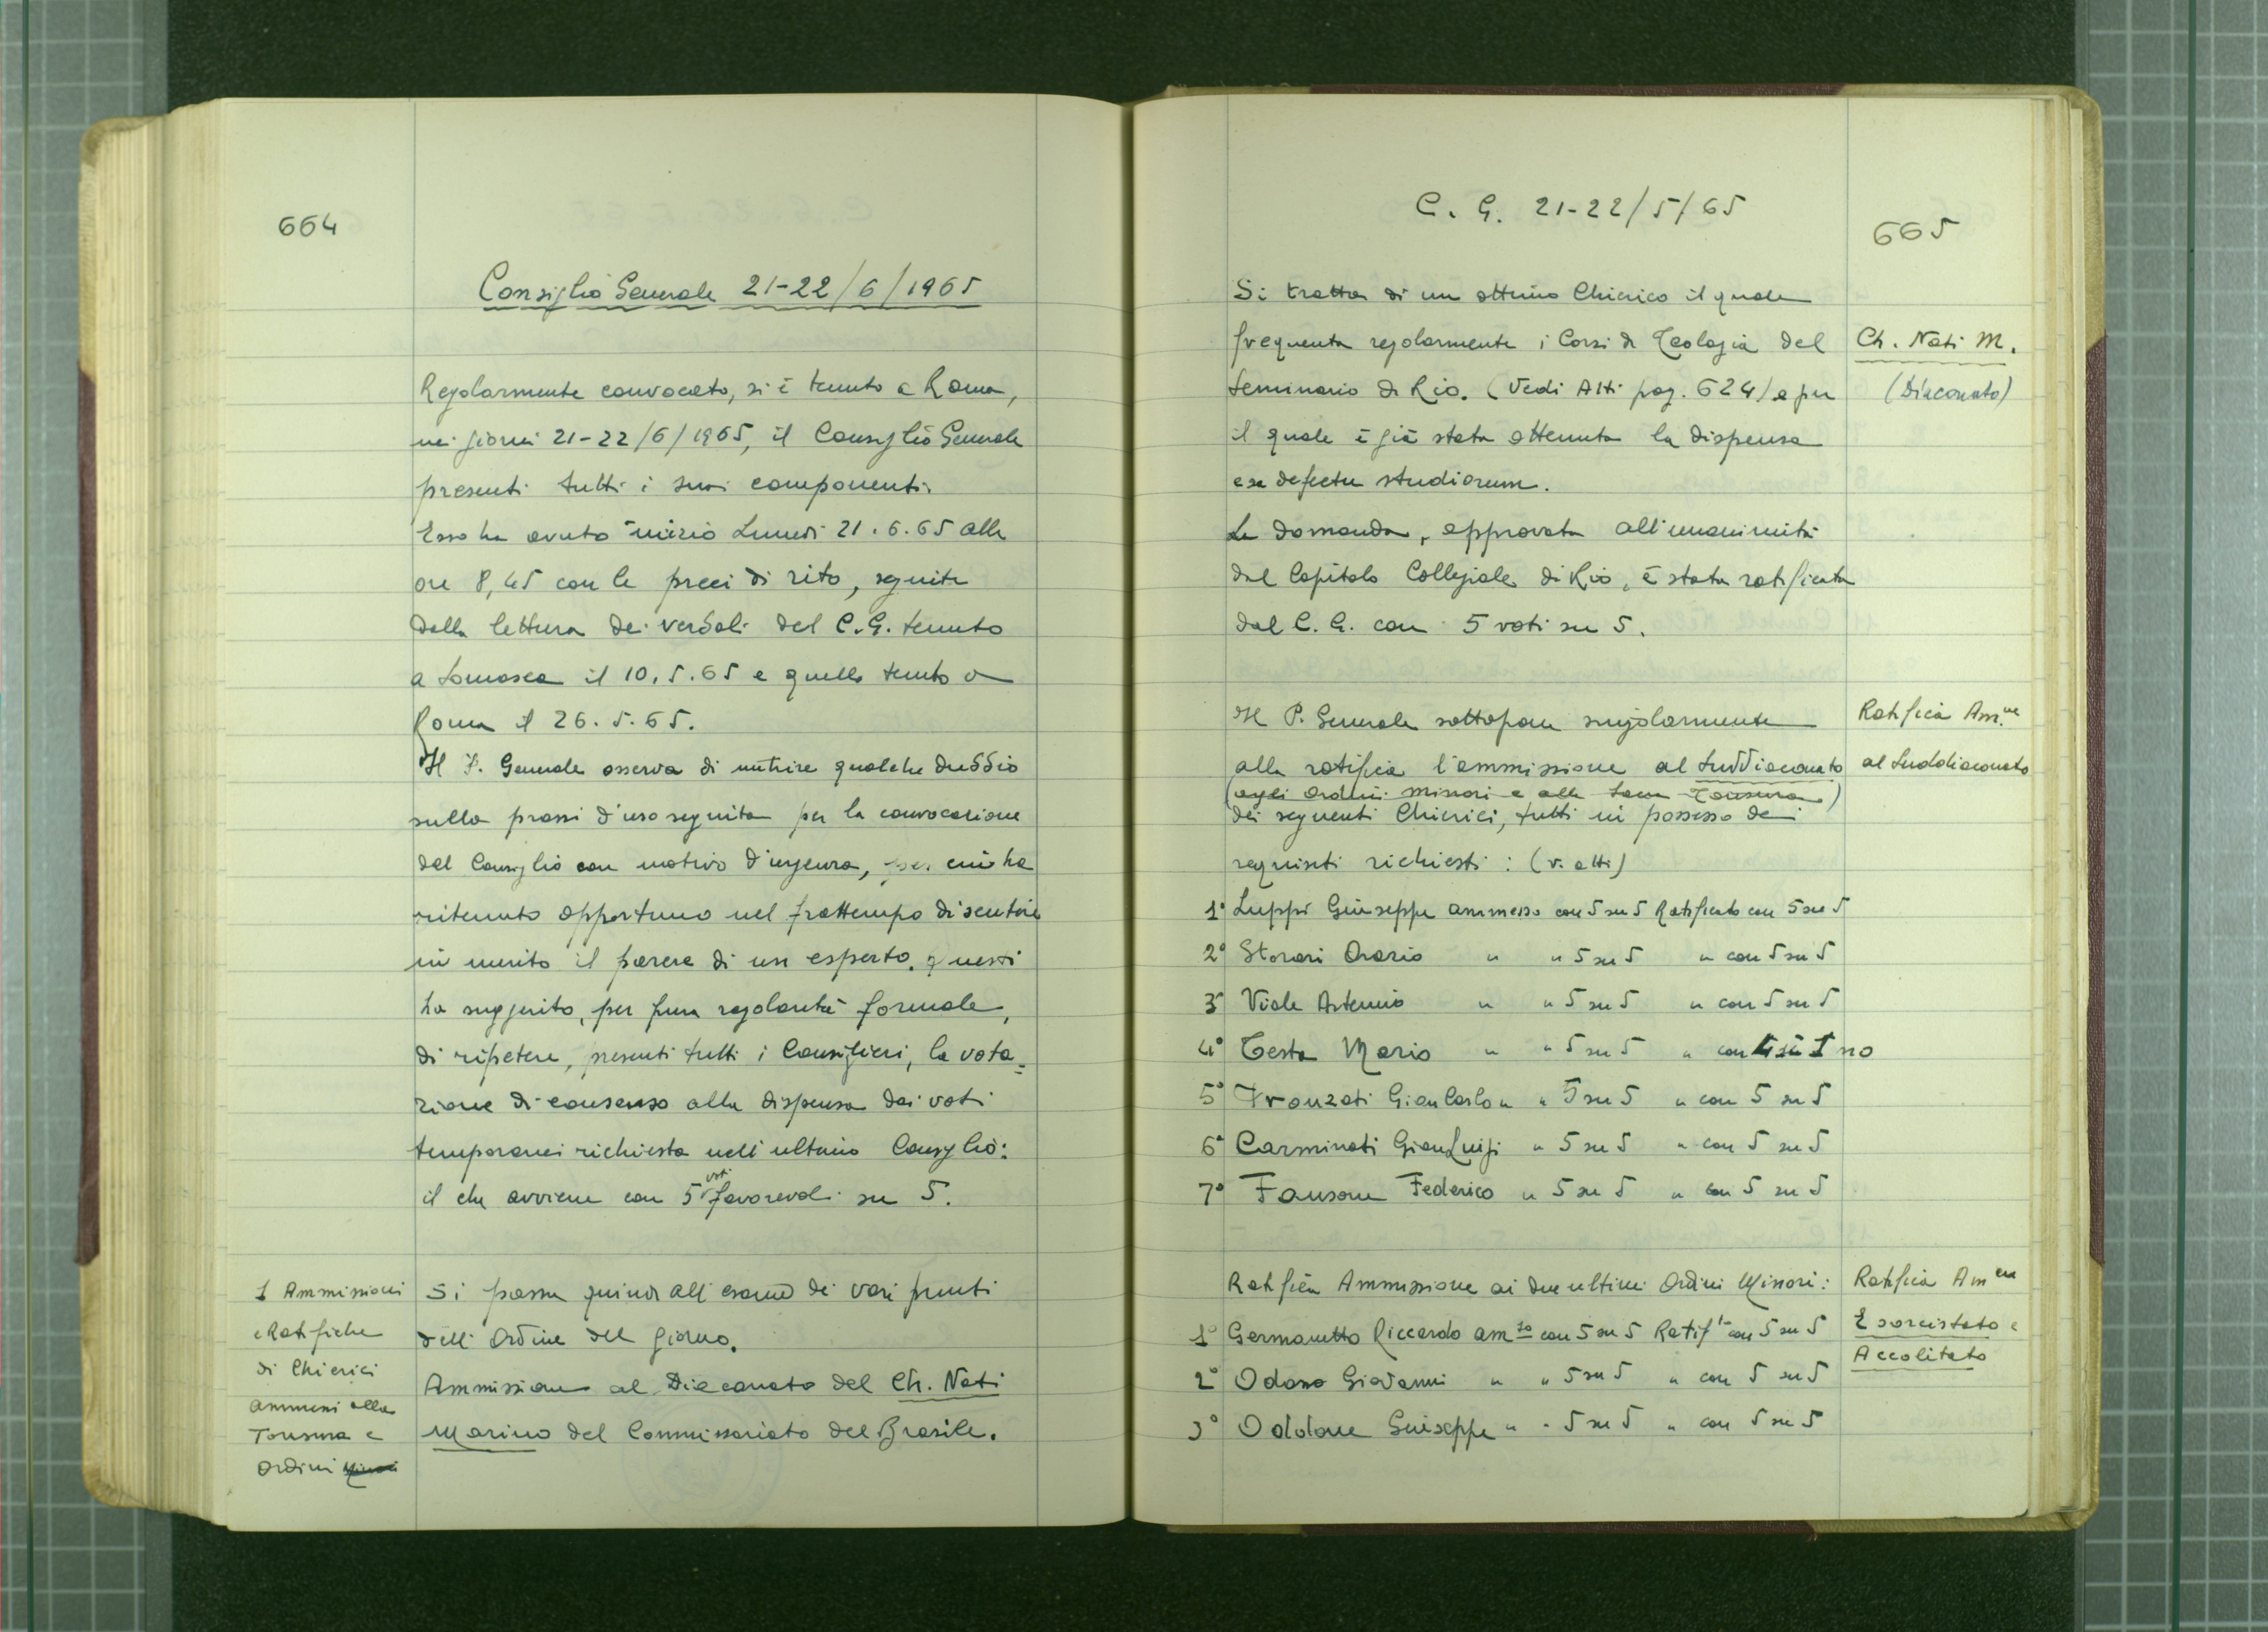 664
Consiglio Generale 21-22/6/1965
Regolarmente convocato, si è tenuto a Roma,
nei giorni 21-22/6/1965, il Consiglio Generale
presenti tutti i suoi componenti.
Esso ha avuto inizio Lunedì 21.6.65 alle
ore 8,45 con le preci di rito, seguite
dalla lettura dei verbali del C.G. tenuto
a Somasca il 10.5.65 e quello tenuto a
Roma il 26.5.65.
Il P. Generale osserva di nutrire qualche dubbio
sulla prassi d'uso seguita per la convocazione
del Consiglio con motivo d'urgenza, per cui ha
ritenuto opportuno nel frattempo di sentire
in merito il parere di un esperto. questi
ha suggerito, per pura regolarità formale,
di ripetere, presenti tutti i Consiglieri, la vota=
zione di consenso alla dispensa dai voti
temporanei richiesta nell'ultimo Consiglio:
il che avviene con 5 voti favorevoli su 5.
1 Ammissioni
e Ratifiche
di Chierici
ammessi alla
Tonsura e
Ordini Minori
Si passa quindi all'esame dei vari punti
dell'Ordine del giorno.
Ammissione al Diaconato del Ch. Nati
Marino del Commissariato del Brasile.
C. G. 21-22/5/65
665
Si tratta di un ottimo Chierico il quale
frequenta regolarmente i Corsi di Teologia del
Seminario di Rio. (Vedi Atti pag. 624) e per
il quale è già stata ottenuta la dispensa
ex defectu studiorum.
La domanda, approvata all'unanimità
dal Capitolo Collegiale di Rio, è stata ratificata
dal C. G. con 5 voti su 5.
Ch. Nati M.
(Diaconato)
Il P. Generale sottopone singolarmente
alla ratifica l'ammissione al Suddiaconato
(agli Ordini Minori e alla Sacra Tonsura)
dei seguenti Chierici, tutti in possesso dei
requisiti richiesti: (v. atti)
Ratifica Am.ne
al Suddiaconato
1° Luppi Giuseppe ammesso con 5 su 5 Ratificato con 5 su 5
2° Storari Orario " " 5 su 5 " con 5 su 5
3° Viale Artemio " " 5 su 5 " con 5 su 5
4° Testa Mario " " 5 su 5 " con 4 sì 1 no
5° Franzati GianCarlo " " 5 su 5 " con 5 su 5
6° Carminati GianLuigi " 5 su 5 " con 5 su 5
7° Fausone Federico " 5 su 5 " con 5 su 5
Ratifica Ammissione ai due ultimi Ordini Minori:
1° Germanetto Riccardo am.so con 5 su 5 Ratif.to con 5 su 5
2° Odasso Giovanni " " 5 su 5 " con 5 su 5
3° Oddone Giuseppe " " 5 su 5 " con 5 su 5
Ratifica Am.ne
Esorcistato e
Accolitato